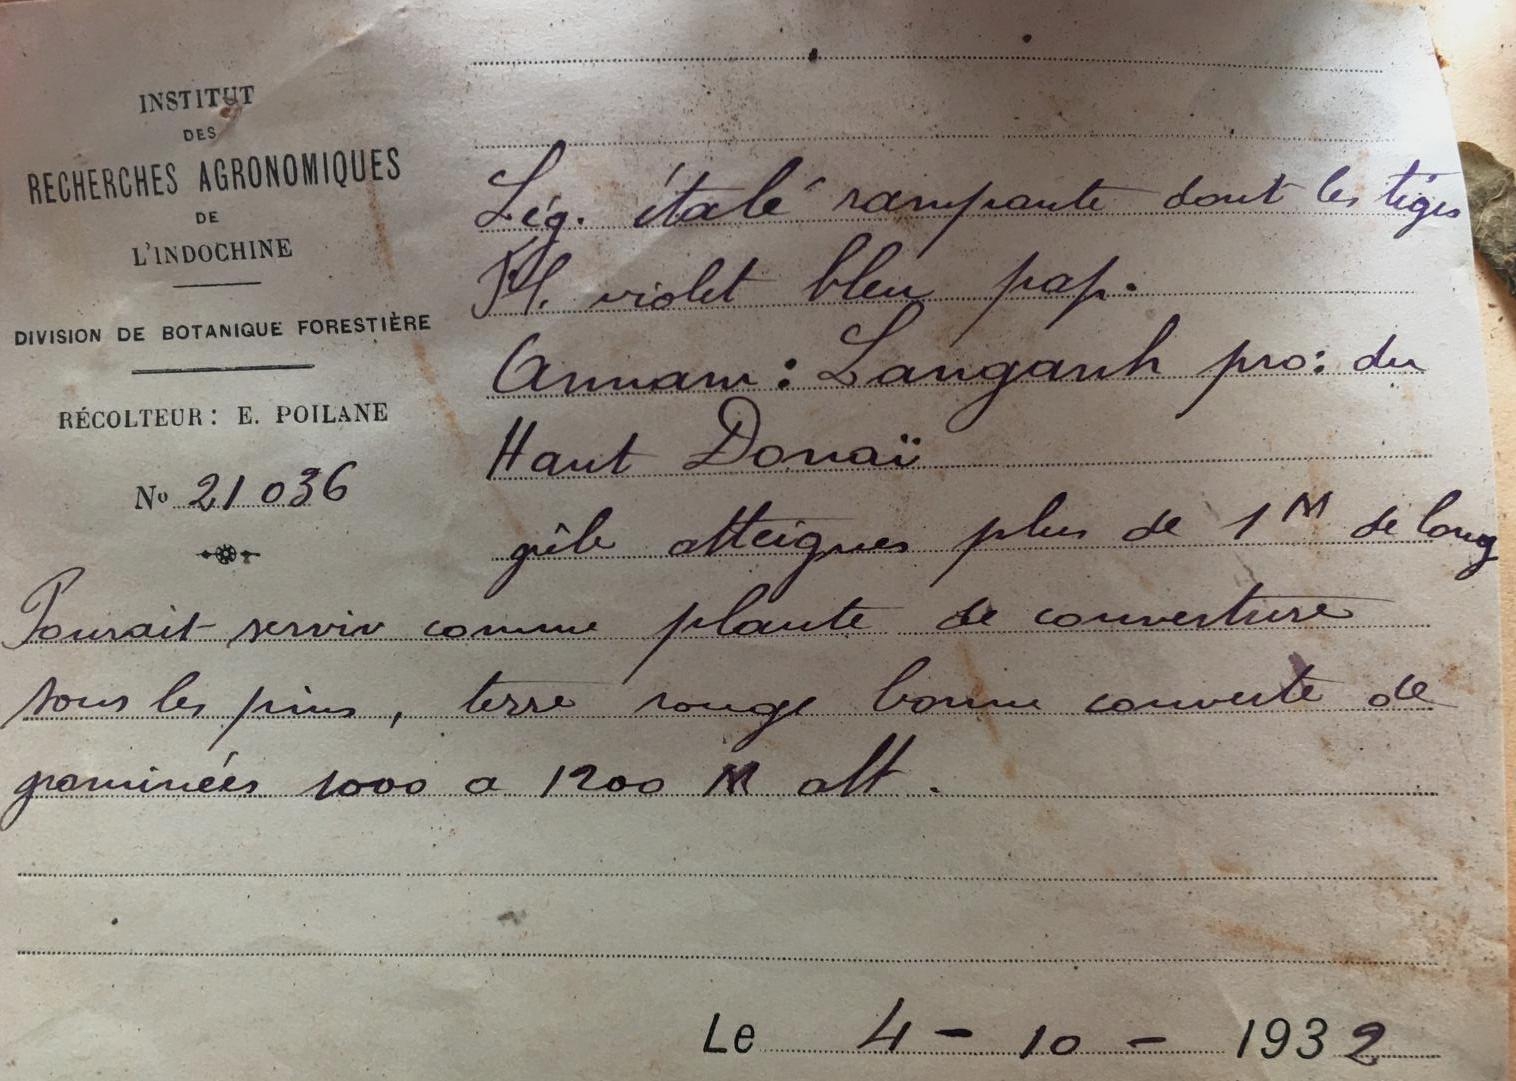 INSTITUT
DES
RECHERCHES AGRONOMIQUES
DE
L'INDOCHINE
DIVISION DE BOTANIQUE FORESTIÈRE
RÉCOLTEUR: E. POILANE
No 21 036
Lég. étalé rampante dont les tiges
Fl. violet bleu pap.
Annam : Langanh pro: du
Haut Donaï
atteignes plus de 1 M de long
Pourait servir comme plante de couverture
sous les pins, terre rouge bonne couverte de
graminées 1000 a 1200 M alt.
Le 4 - 10 - 1932